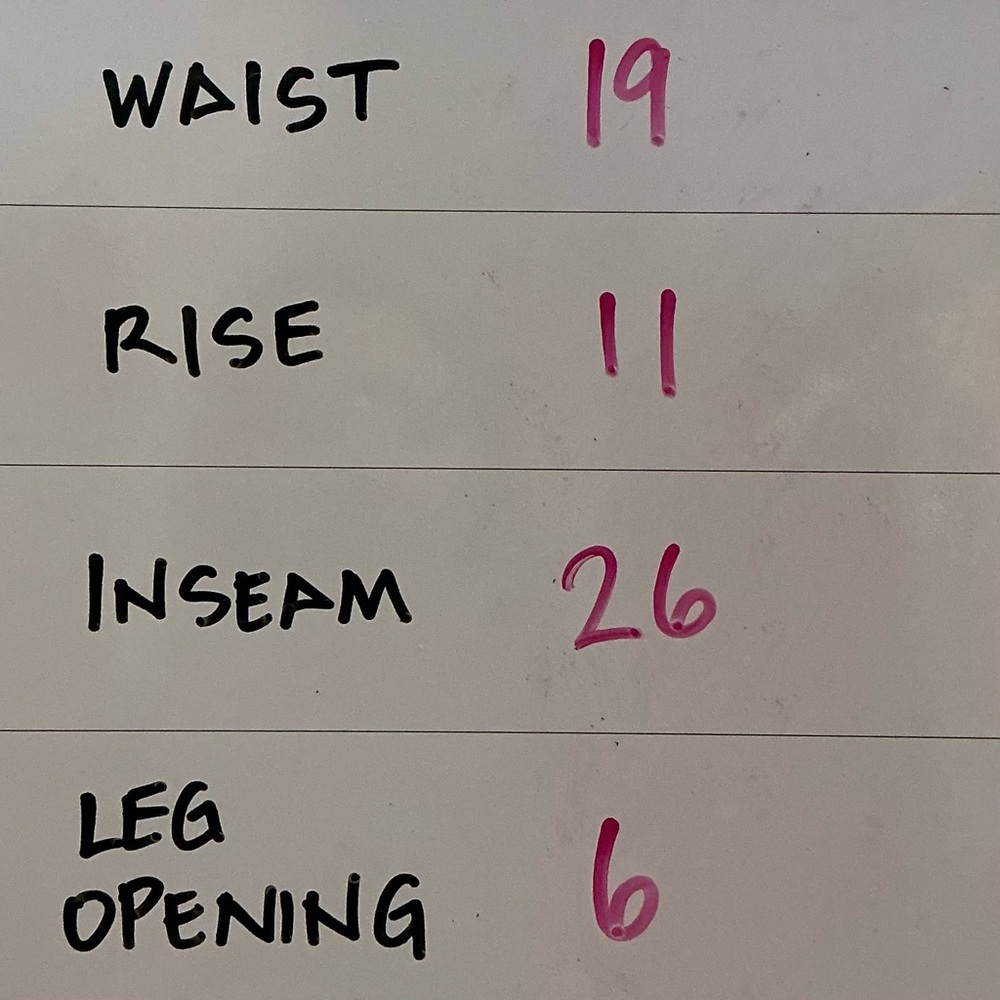 WAIST 19
RISE 11
INSEAM 26
LEG
OPENING 6